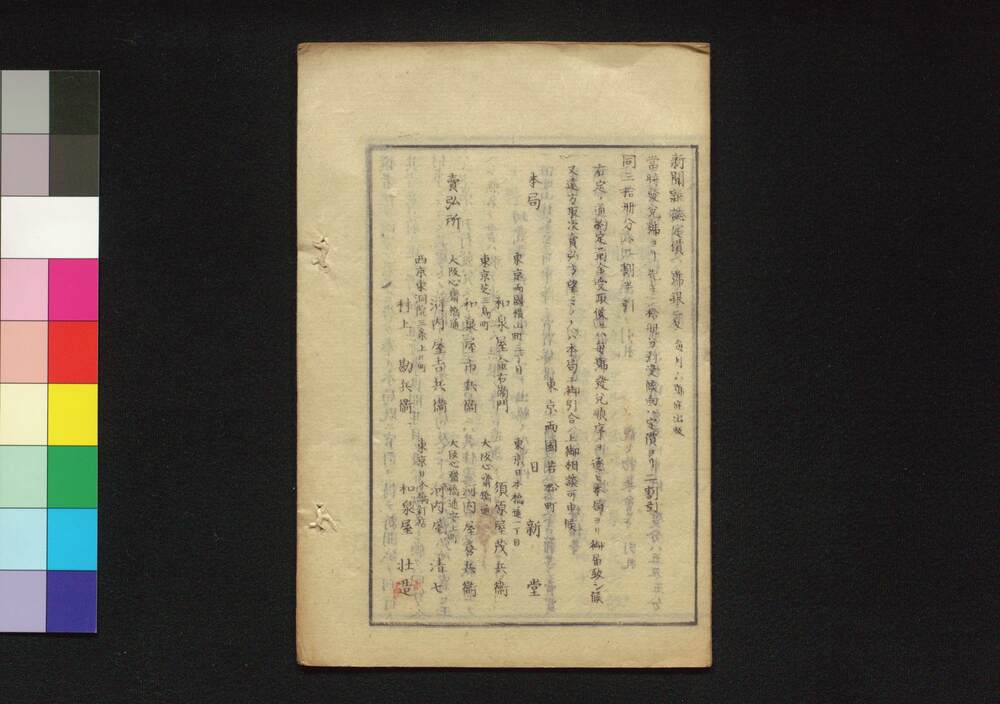 新聞雜誌定價一號銀一匁 毎月六號宛出板
當時發兌號ヨリ先キ二拾册分引受候向ハ定價ヨリ二割引
同三拾册分 二割半引
右定ノ通約定ノ前金受取置候ハ毎號發兌順序ヲ逐ヒ本局ヨリ御届致シ候
又遠方取次賣弘等望ミノ方ハ本局ニ御引合ノ上御相談可申候
東京兩國若松町
本局 日新堂
東京兩國横山町三丁目
和泉屋金右衞門
東京日本橋通一丁目
須原屋茂兵衞
東京芝三島町
和泉屋市兵衞
大阪心齋橋通
河内屋喜兵衞
賣弘所
大阪心齋橋通
河内屋吉兵衞
大阪心齋橋通安土町
河内屋清七
西京東洞院三条上ル町
村上勘兵衞
東京日本橋釘店
和泉屋壯造